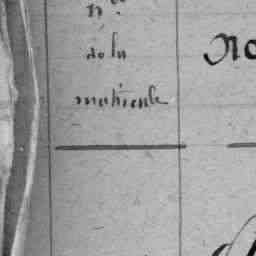 N°
de la
matricule
No